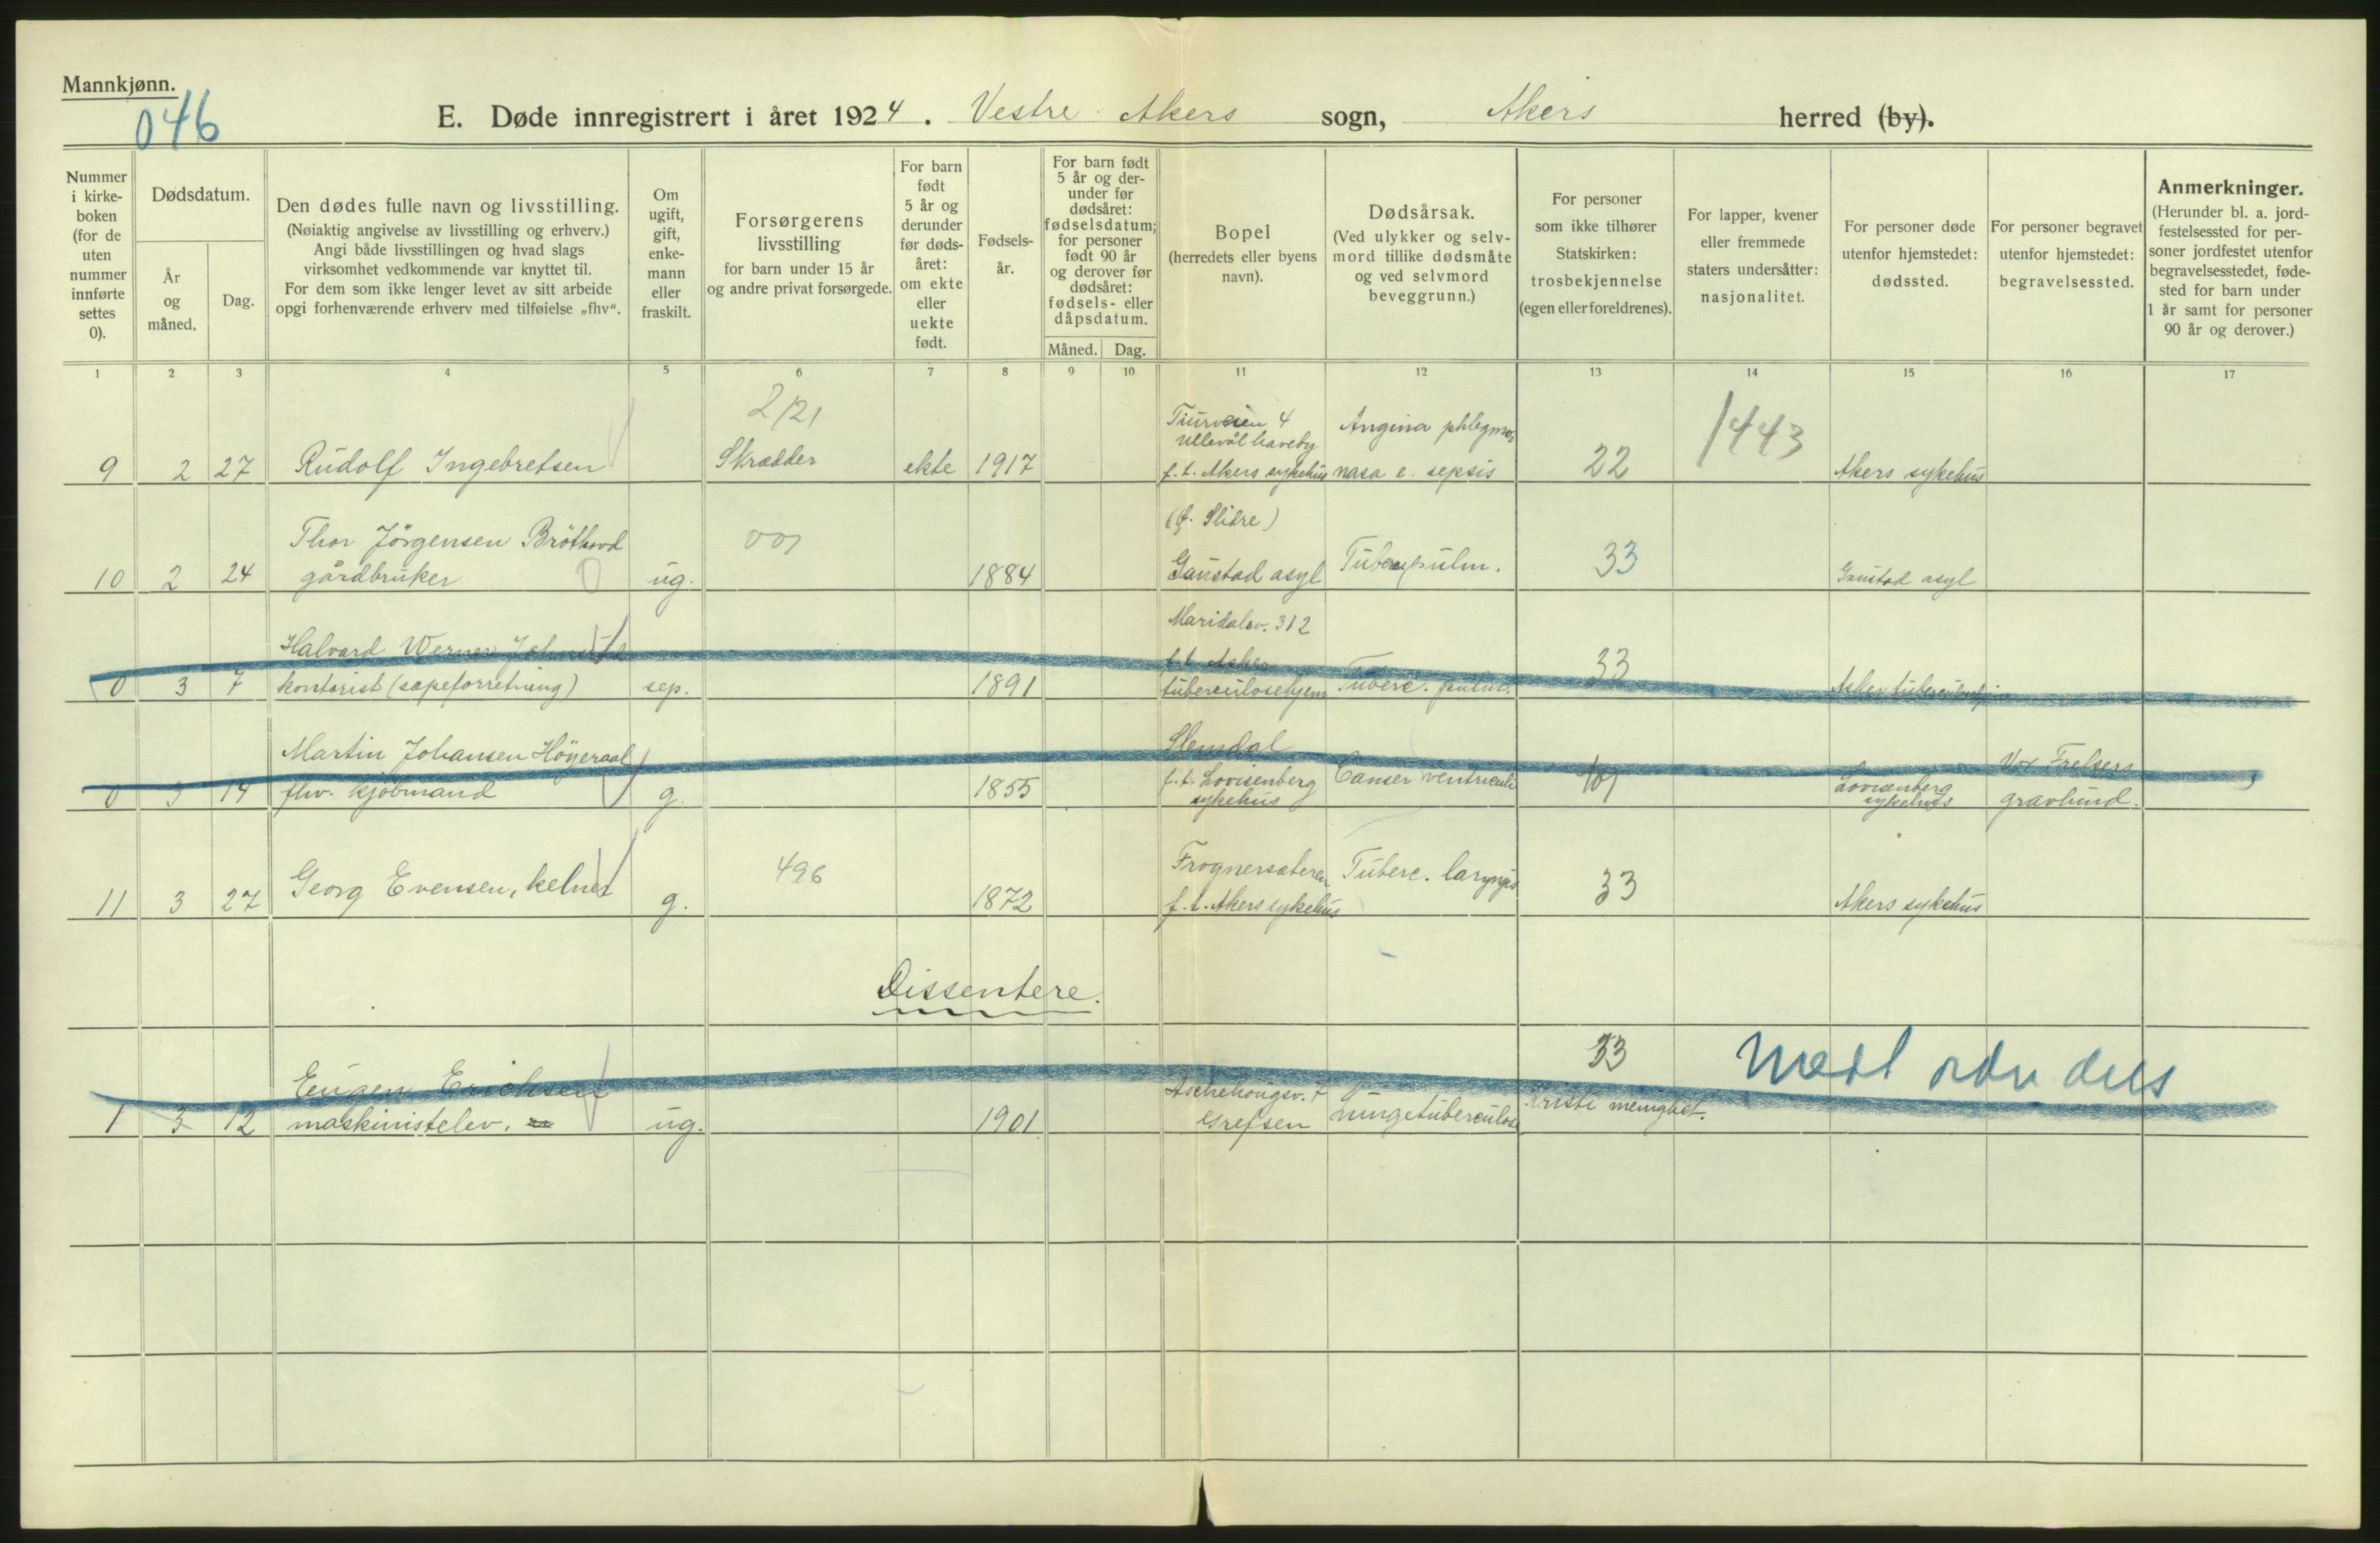 Mannkjønn.
046
E. Døde innregistrert i året 1924. Vestre Akers sogn, Akers herred (by).
Nummer i kirke-boken (for de uten nummer innførte settes 0).
Dødsdatum.
År og måned.
Dag.
Den dødes fulle navn og livsstilling.
(Nøiaktig angivelse av livsstilling og erhverv.)
Angi både livsstillingen og hvad slags
virksomhet vedkommende var knyttet til.
For dem som ikke lenger levet av sitt arbeide
opgi forhenværende erhverv med tilføielse „fhv“.
Om ugift, gift, enke-mann eller fraskilt.
Forsørgerens livsstilling
for barn under 15 år
og andre privat forsørgede.
For barn født 5 år og derunder før døds-året: om ekte eller uekte født.
Fødsels-år.
For barn født 5 år og der-under før dødsåret: fødselsdatum; for personer født 90 år og derover før dødsåret: fødsels- eller dåpsdatum.
Måned. Dag.
Bopel
(herredets eller byens navn).
Dødsårsak.
(Ved ulykker og selv-mord tillike dødsmåte og ved selvmord beveggrunn.)
For personer som ikke tilhører Statskirken: trosbekjennelse (egen eller foreldrenes).
For lapper, kvener eller fremmede staters undersåtter: nasjonalitet.
For personer døde utenfor hjemstedet: dødssted.
For personer begravet utenfor hjemstedet: begravelsessted.
Anmerkninger.
(Herunder bl. a. jord-festelsessted for per-soner jordfestet utenfor begravelsesstedet, føde-sted for barn under 1 år samt for personer 90 år og derover.)
1 2 3 4 5 6 7 8 9 10 11 12 13 14 15 16 17
2/21 Tiurveien 4 Angina phlegmo- 1443
Ullevål haveby
9 2 27 Rudolf Ingebretsen Skrædder ekte 1917 f. t. Akers sykehus nasa e. sepsis 22 Akers sykehus
(f. Slidre)
Thor Jörgensen Bröthovd 001
10 2 24 gårdbruker 0 ug. 1884 Gaustad asyl Tuberc. pulm. 33 Gaustad asyl
Maridalsv. 312
Halvard Werner f. t. Asker 33
0 3 7 kontorist (sæpeforretning) sep. 1891 tuberculosehjem Tuberc. pulm. Asker tuberculosehjem
Martin Johansen Höyeraal Slemdal Vor Frelsers
0 3 14 fhv. kjöbmand g. 1855 f. t. Lovisenberg sykehus Cancer ventriculi Lovisenberg sykehus gravlund.
496 Frognersæteren
11 3 27 Georg Evensen, kelner g. 1872 f. t. Akers sykehus Tuberc. laryngis 33 Akers sykehus
Dissentere.
33
Eugen Erichsen Aschehougsv.
1 3 12 maskinistelev. ug. 1901 Grefsen Lungetuberculose Kristi menighet.